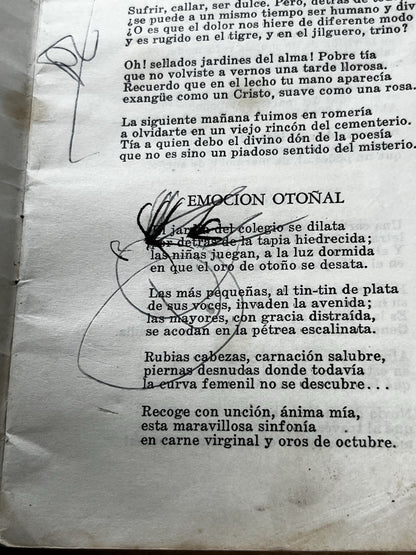 Sufrir, callar, ser dulce. Pero, detrás de
¿se puede a un mismo tiempo ser humano y
¿O es que el dolor nos hiere de diferente modo
y es rugido en el tigre, y en el jilguero, trino?
Oh! sellados jardines del alma! Pobre tía
que no volviste a vernos una tarde llorosa.
Recuerdo que en el lecho tu mano aparecía
exangüe como un Cristo, suave como una rosa.
La siguiente mañana fuimos en romería
a olvidarte en un viejo rincón del cementerio.
Tía a quien debo el divino dón de la poesía
que no es sino un piadoso sentido del misterio.
EMOCION OTOÑAL
El jardín del colegio se dilata
por detrás de la tapia hiedrecida;
las niñas juegan, a la luz dormida
en que el oro de otoño se desata.
Las más pequeñas, al tin-tin de plata
de sus voces, invaden la avenida;
las mayores, con gracia distraída,
se acodan en la pétrea escalinata.
Rubias cabezas, carnación salubre,
piernas desnudas donde todavía
la curva femenil no se descubre...
Recoge con unción, ánima mía,
esta maravillosa sinfonía
en carne virginal y oros de octubre.